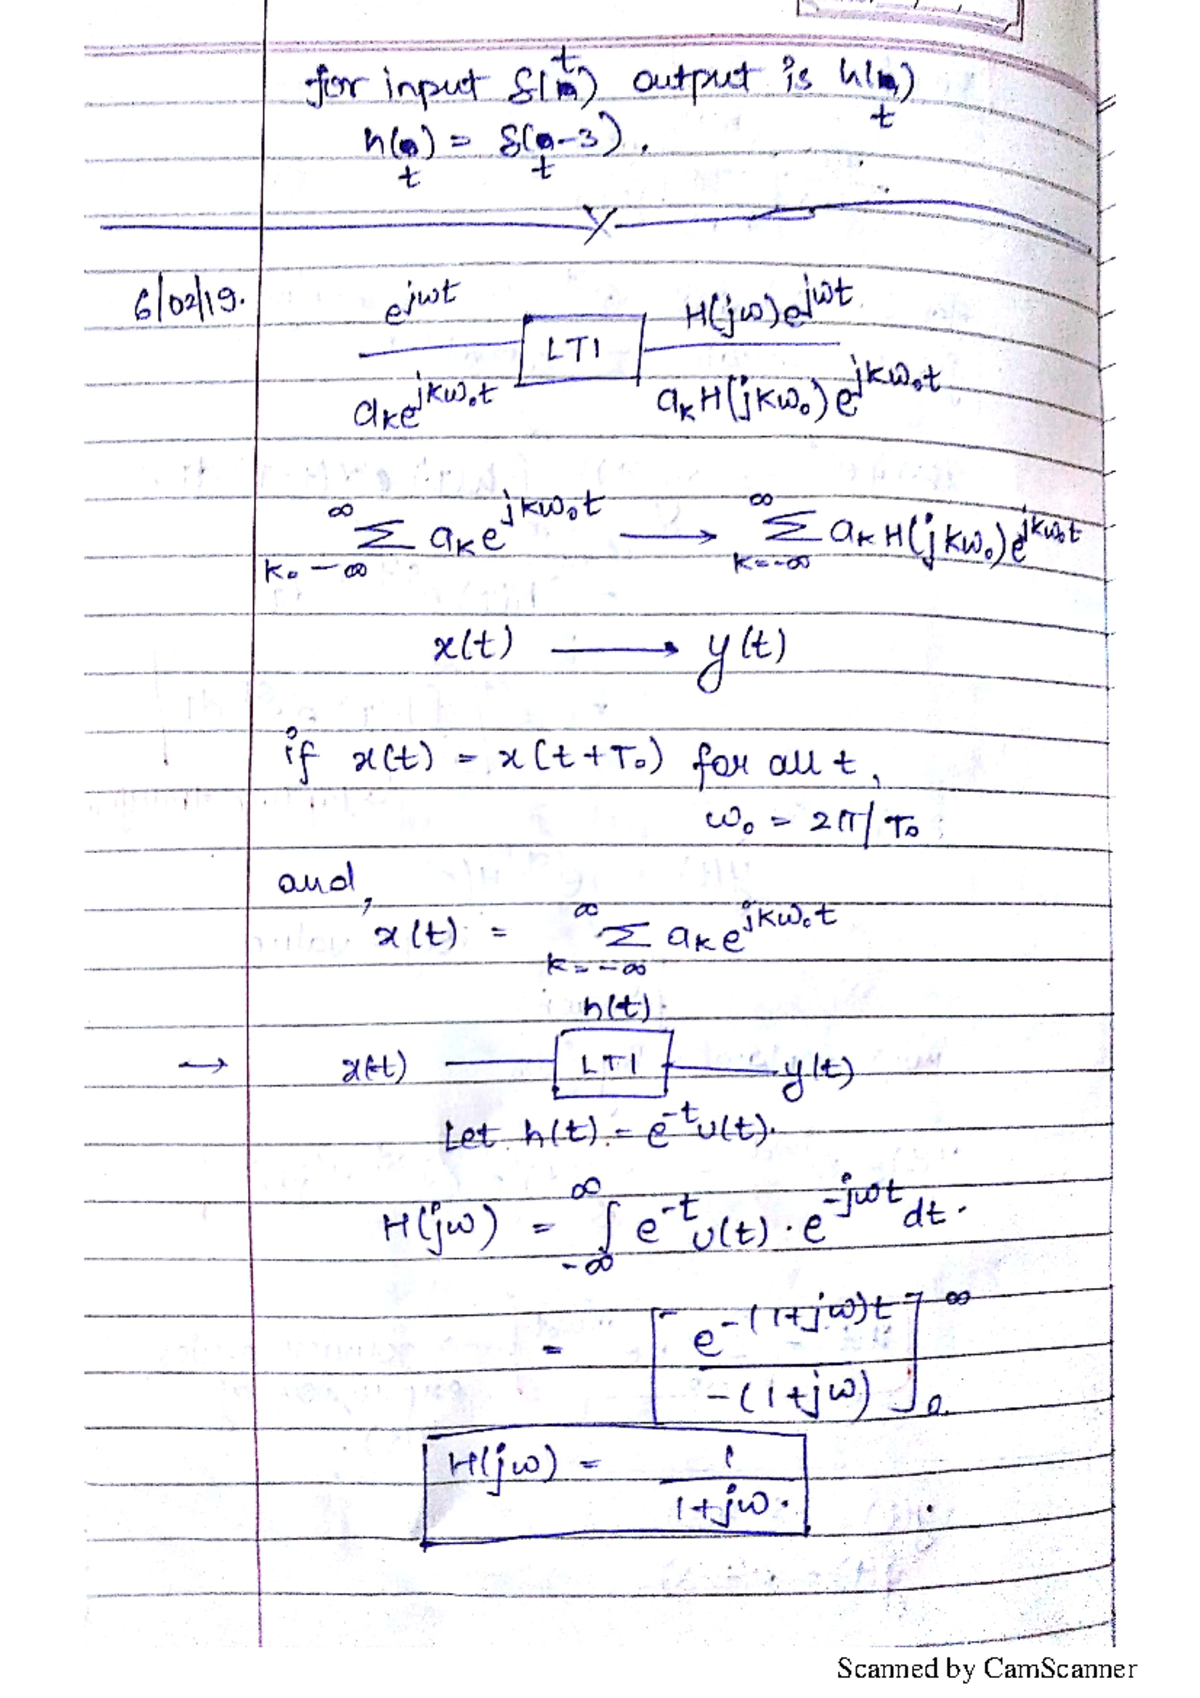 for input δ(t) output is h(t)
h(t) = δ(t-3).
6/02/19.
e^{jωt} LTI H(jω)e^{jωt}
a_k e^{jkω₀t} a_k H(jkω₀) e^{jkω₀t}
∞ Σ k=-∞ a_k e^{jkω₀t} → ∞ Σ k=-∞ a_k H(jkω₀) e^{jkω₀t}
x(t) → y(t)
if x(t) = x(t+T₀) for all t,
ω₀ = 2π/T₀
and,
x(t) = ∞ Σ k=-∞ a_k e^{jkω₀t}
h(t)
→ x(t) LTI y(t)
Let h(t) = e^{-t}u(t).
H(jω) = ∫_{-∞}^{∞} e^{-t}u(t) · e^{-jωt} dt.
= [e^{-(1+jω)t} / -(1+jω)]_0^∞
H(jω) = 1 / 1+jω.
Scanned by CamScanner